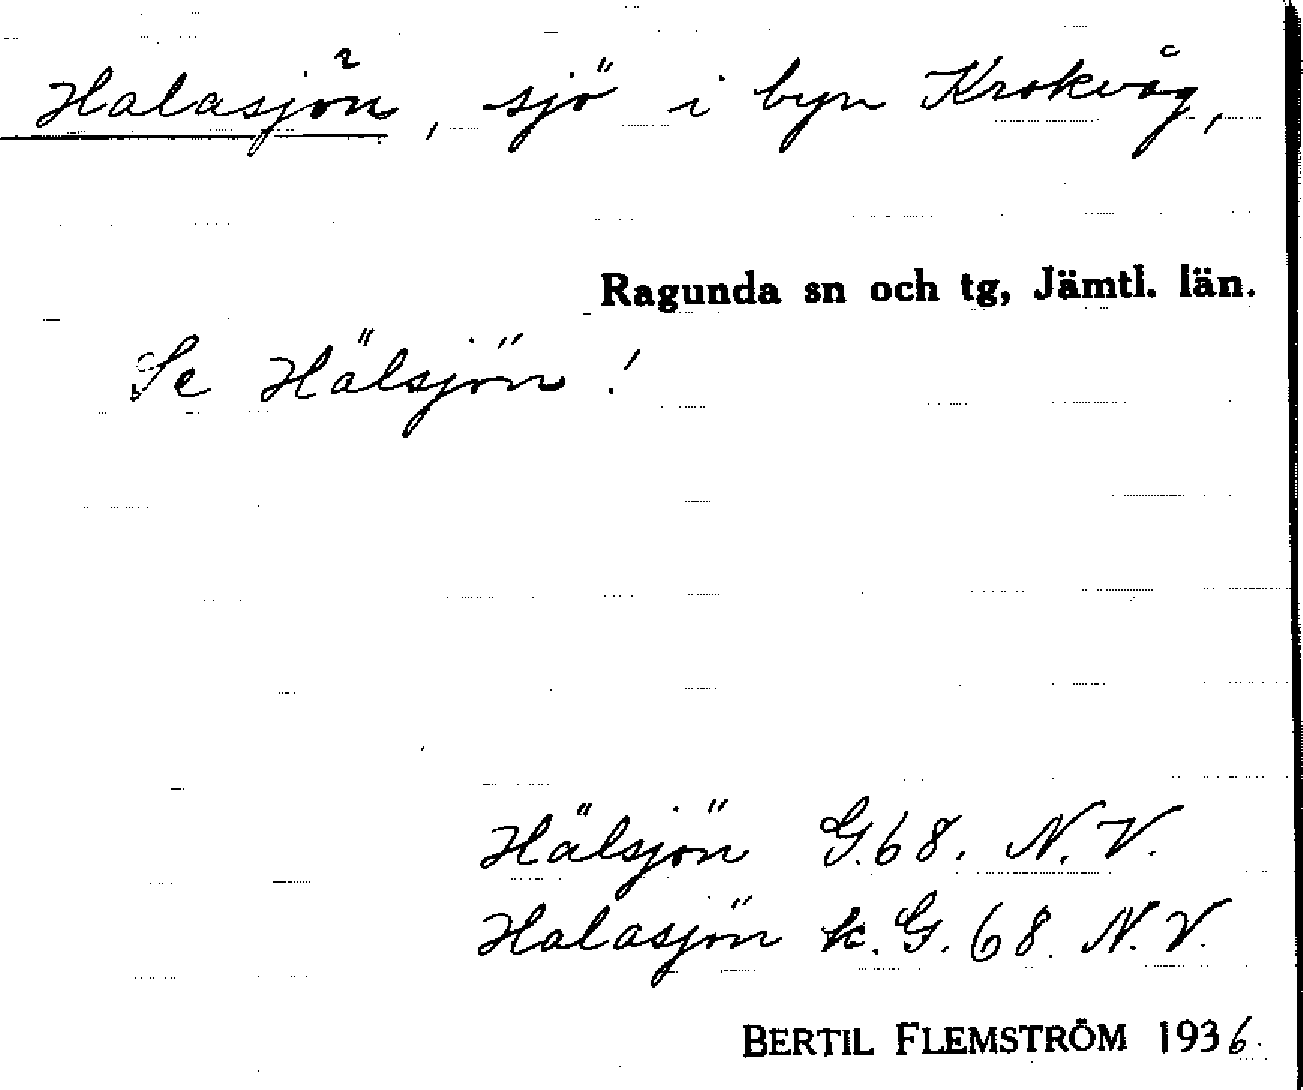 Halasjön, sjö i byn Krokvåg,
Ragunda sn och tg, Jämtl. län.
Se Hälsjön!
Hälsjön G.68. N.V.
Halasjön k. G. 68. N.V.
BERTIL FLEMSTRÖM 1936.